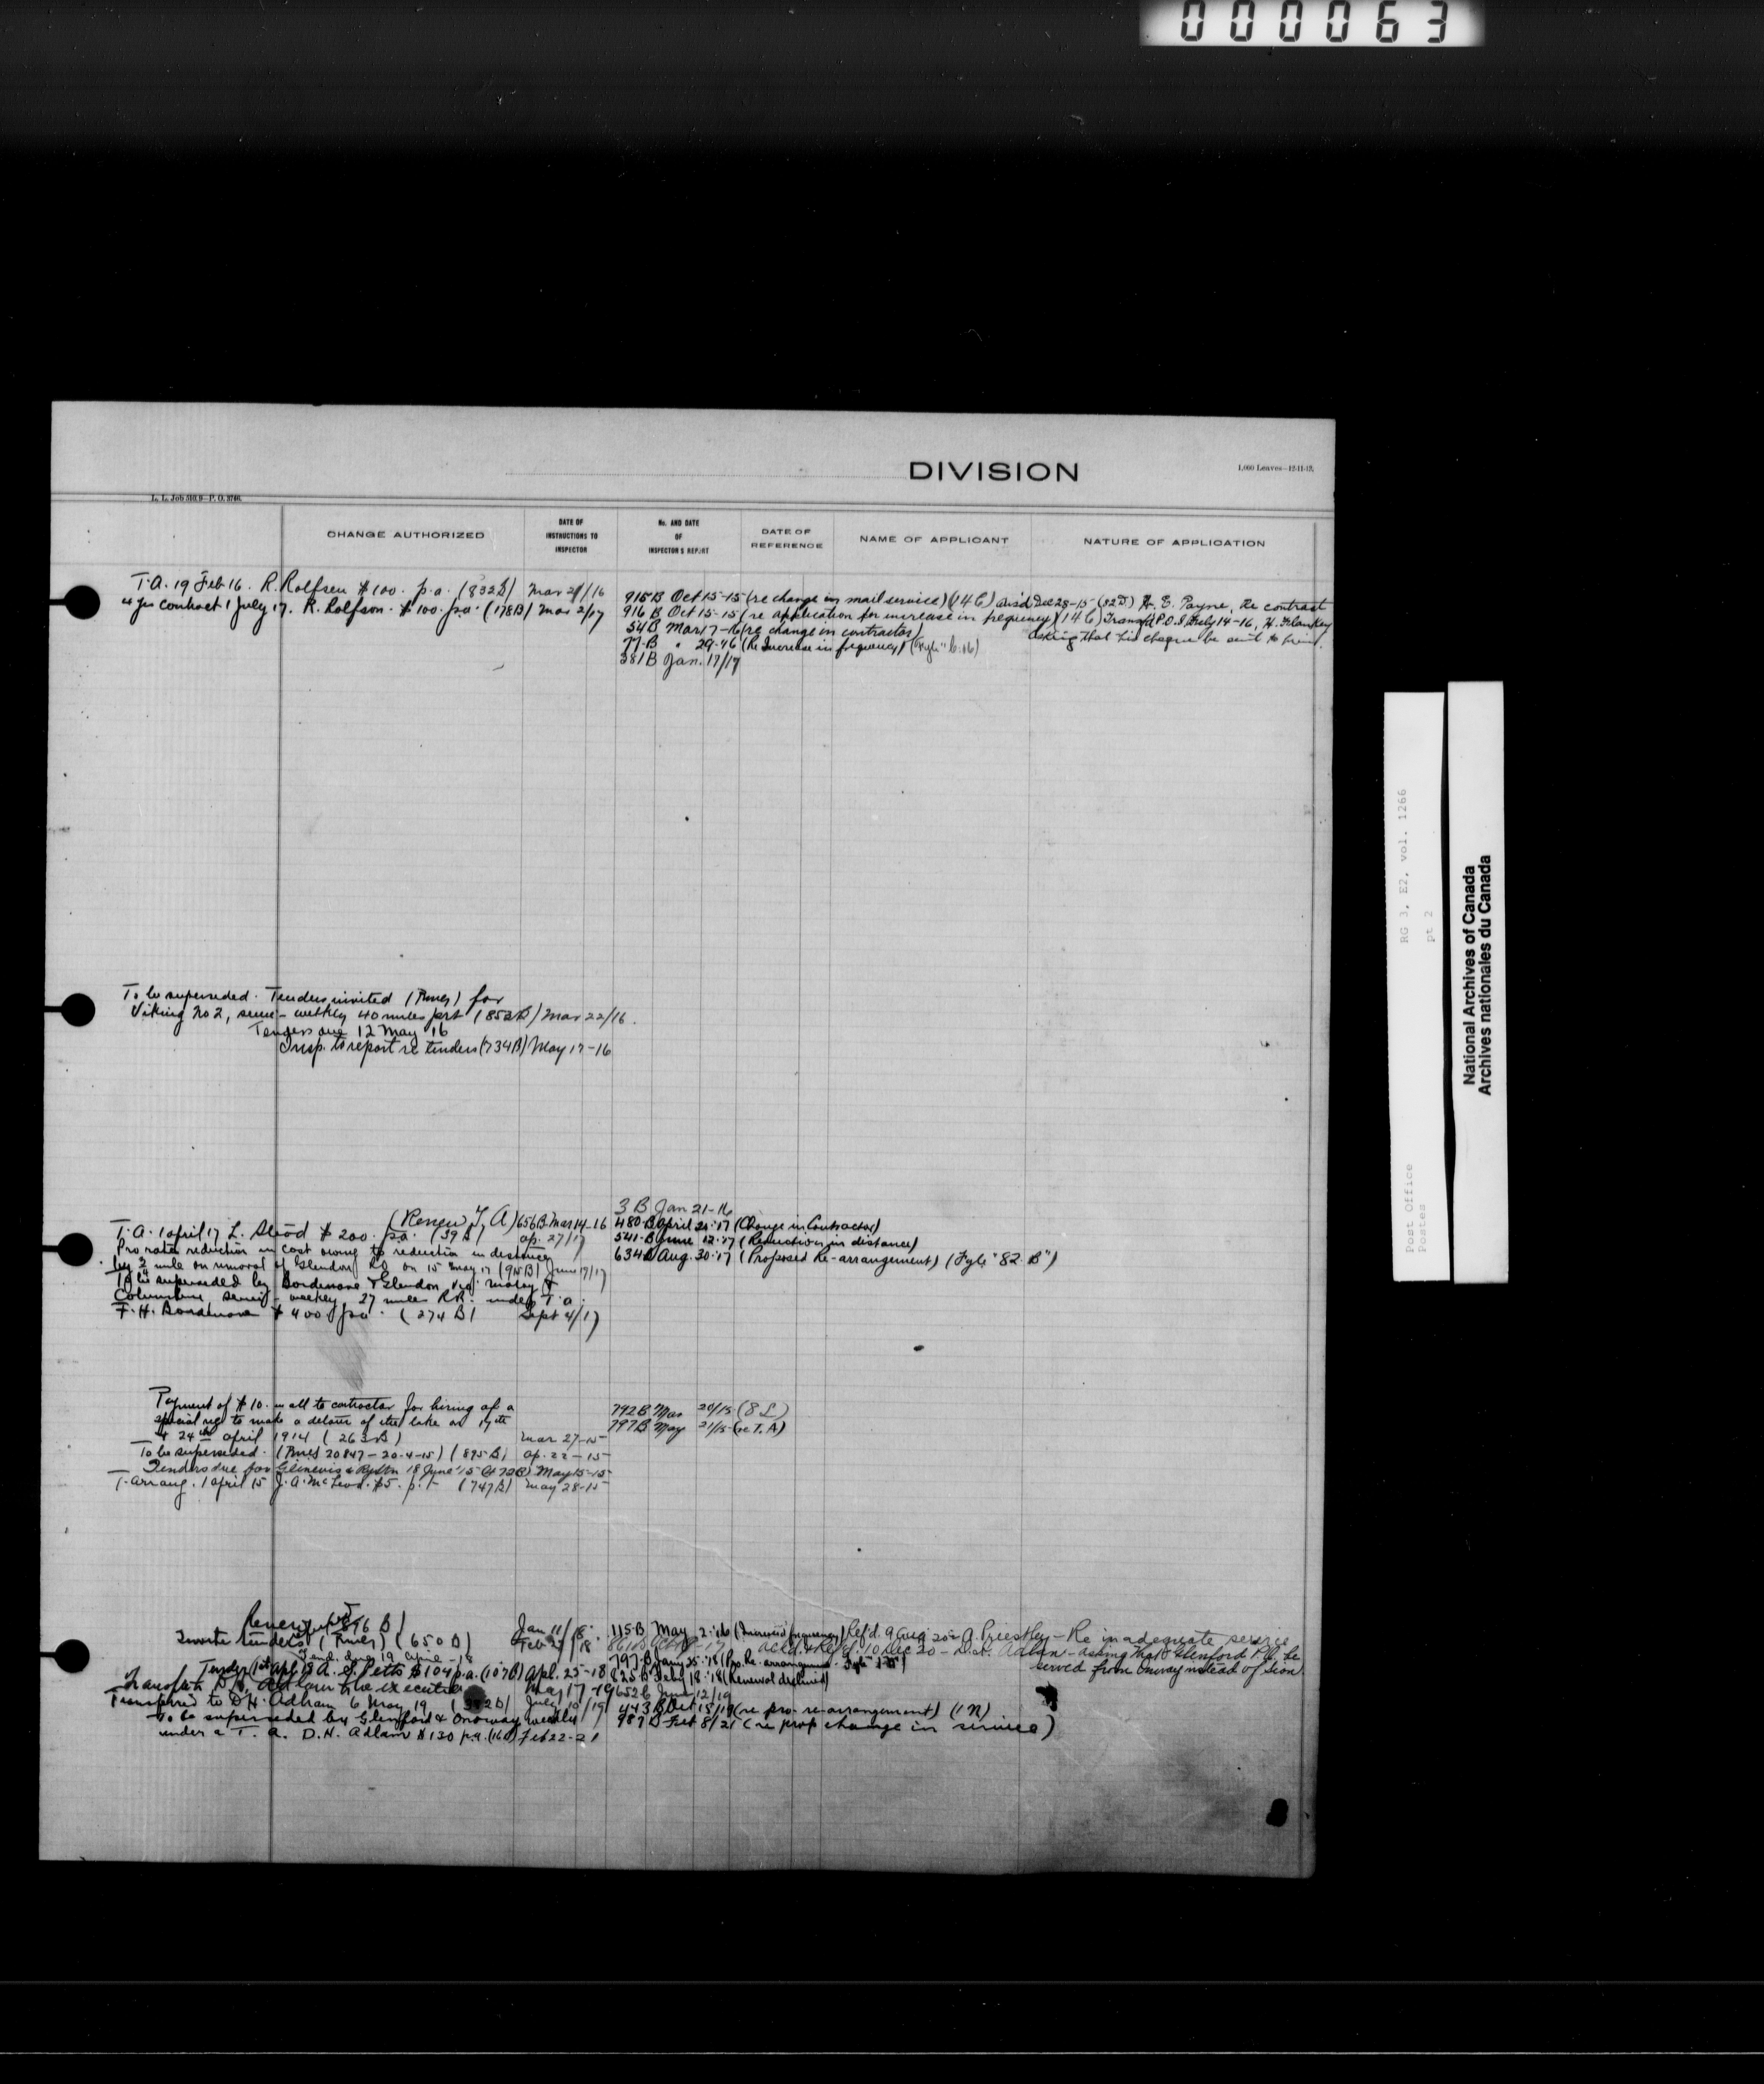 000063
DIVISION
1,000 Leaves—12-11-13.
L. L. Job 510.9—P. O. 3746.
CHANGE AUTHORIZED
DATE OF INSTRUCTIONS TO INSPECTOR
No. AND DATE OF INSPECTOR'S REPORT
DATE OF REFERENCE
NAME OF APPLICANT
NATURE OF APPLICATION
T.A. 19 Feb 16. R. Rolfson $100. p.a. (832B) Mar 21/16
4 yr contract 1 July 17. R. Rolfson $100. p.a. (178B) Mar 2/17
915B Oct 15-15 (re change in mail service) (14C) Dec 28-15 (32D) H. E. Payne, Re contract
916B Oct 15-15 (re application for increase in frequency) (14C) P.O.S. July 14-16, H.
54B Mar 17-16 (re change in contractor) asking that his cheque be sent to him.
77B " 29-16 (Re Increase in frequency)
381B Jan. 17/17
To be superseded. Tenders invited (Times) for
Viking No 2, semi-weekly 40 miles prt (852B) Mar 22/16.
Tenders due 12 May 16
Insp. to report re tenders (734B) May 17-16
3B Jan 21-16
(Renew T, A) 656B Mar 14-16 480-B April 21-17 (Change in Contractor)
T.A. 1 April 17 L. Stood $200. p.a. (39B) Ap. 27/17 541-B June 12-17 (Reduction in distance)
Pro rata reduction in cost owing to reduction in distance 634B Aug. 30-17 (Proposed Re-arrangement) (Fyle "82 B")
by 2 mile on removal of Glendon P.O. on 15 May 17 (915B) June 19/17
To be superseded by Bordenave & Glendon, via Maloy &
Columbine semi-weekly 27 miles R.R. under T.a.
F. H. Bordenave $400 p.a. (274B) Sept 4/17
Payment of $10. in all to contractor for hiring of a
special rig to make a detour of the lake on 17th
& 24th April 1914 (263B) Mar 27-15
792B Mar 20/15 (8L)
797B May 21/15 (re T.A)
To be superseded. (Times 20847-20-4-15) (895B) Ap. 22-15
Tenders due for Glenevis & 18 June '15 May 15-15
T. arrang. 1 April 15 J. A. McLeod. $5. p.t (747B) May 28-15
Renew (896B) Jan 11/18
Invite tenders (Times) (650B) Feb 27/18
115-B May 2-16 (Increased frequency) Ref'd. 9 Aug 20 A. Priestley - Re inadequate service
Ack'd. & Ref'd. 10 Dec 20 - D.H. Adlam - asking that Glenford P.O. be
served from Onoway instead of Sion.
Tend. due 19 April -18
Tender 1st Apl 18 A. S. Petts $104 p.a. (107B) Apl. 25-18
797-B Jany 25-18 (Pro. Re-arrangement.
825-B Feby 18-18 (Renewal declined)
Transfer to D.H. Adlam to be executed May 17-19
652B June 12/19
Transferred to D.H. Adlam 6 May 19 July 10/19
443B Oct 15/19 (re pro. re-arrangement) (1N)
To be superseded by Glenford & Onoway weekly
987B Feb 8/21 (re prop change in service)
under a T. A. D.H. Adlam $130 p.a. (16B) Feb 22-21
RG 3, E2, vol. 1266
pt 2
Post Office
Postes
National Archives of Canada
Archives nationales du Canada